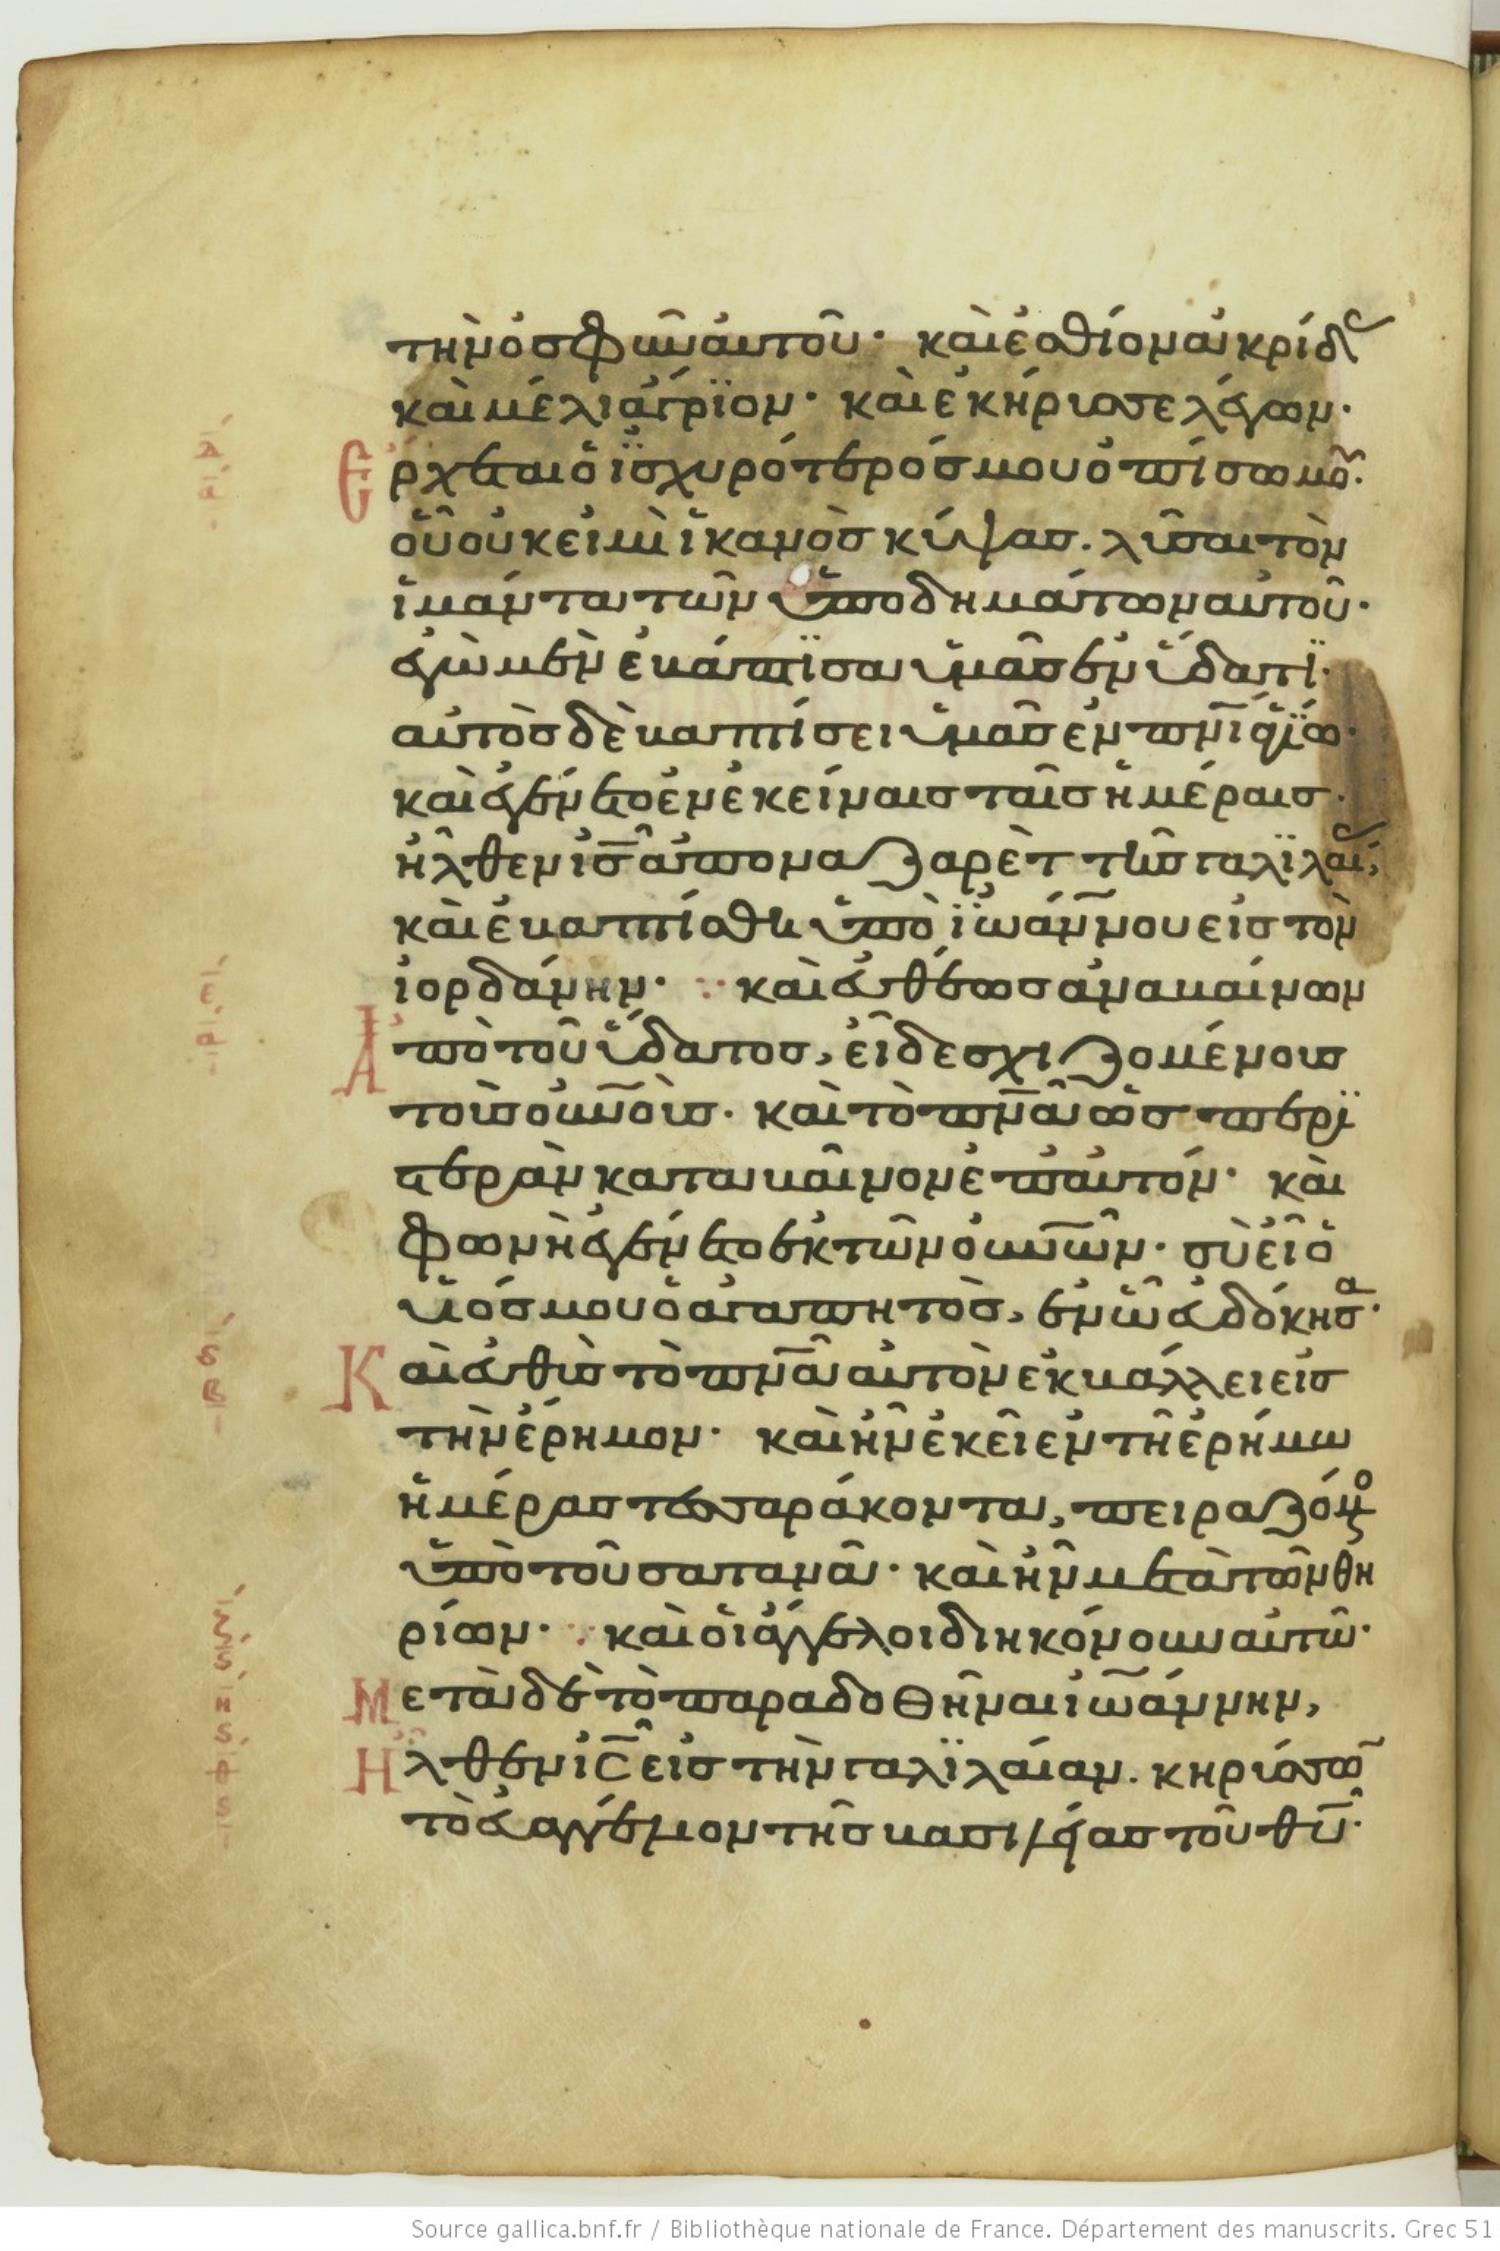 τὴν ὀσφῦν αὐτοῦ· καὶ ἐσθίον ἀκρίδ(ας)
καὶ μέλι ἄγρϊον· καὶ ἐκήρυσσε λέγων·
Ἔρχεται ὁ ἰσχυρότερός μου ὀπίσω μου·
οὗ οὐκ εἰμὶ ἱκανὸς κύψας. λῦσαι τὸν
ἱμάντα τῶν ὑποδημάτων αὐτοῦ·
ἐγὼ μὲν ἐβάπτϊσα ὑμᾶς ἐν ὕδατϊ·
αὐτὸς δὲ βαπτίσει ὑμᾶς ἐν πνι ἁγίω·
καὶ ἐγένετο ἐν ἐκείναις ταῖς ἡμέραις·
ἦλθεν ις ἀπὸ ναζαρὲτ τῆς γαλϊλαί(ας),
καὶ ἐβαπτίσθη ὑπὸ ἰωάννου εἰς τὸν
ἰορδάνην· καὶ εὐθέως ἀναβαίνων
Ἀπὸ τοῦ ὕδατος, εἶδε σχιζομένους
τοὺς οὐνοὺς· καὶ τὸ πνα ὡς περϊ
στερὰν καταβαῖνον ἐπ' αὐτόν· καὶ
φωνὴ ἐγένετο ἐκ τῶν οὐνῶν· σὺ εἶ ὁ
υἱός μου ὁ ἀγαπητὸς, ἐν ὧ εὐδόκησα·
Καὶ εὐθὺς τὸ πνα αὐτὸν ἐκβάλλει εἰς
τὴν ἔρημον· καὶ ἦν ἐκεῖ ἐν τῆ ἐρήμω
ἡμέρας τεσσαράκοντα, πειραζόμενο(ς)
ὑπὸ τοῦ σατανᾶ· καὶ ἦν μετὰ τῶν θη
ρίων· καὶ οἱ ἄγγελοι διηκόνουν αὐτῶ·
Μετὰ δὲ τὸ παραδοθῆναι ἰωάννην,
Ἦλθεν ις εἰς τὴν γαλϊλαίαν. κηρύσσω(ν)
τὸ εὐαγγέλιον τῆς βασιλείας τοῦ θυ·
Source gallica.bnf.fr / Bibliothèque nationale de France. Département des manuscrits. Grec 51